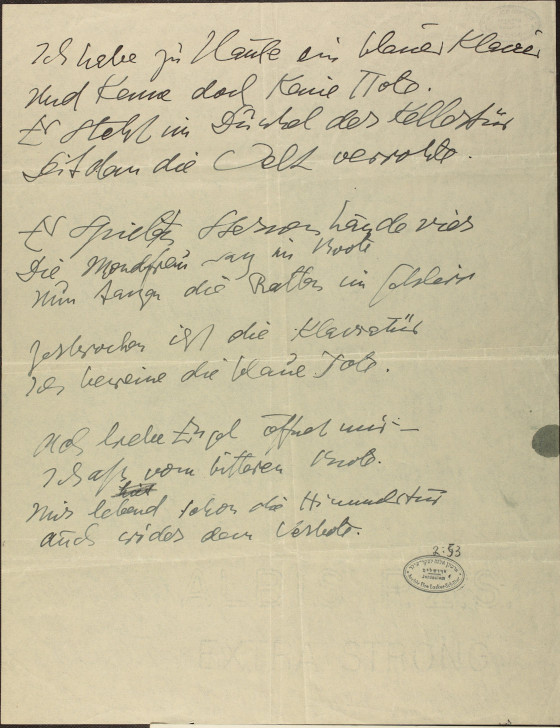 Ich habe zu Hause ein blaues Klavier
Und kenne doch keine Note.
Es steht im Dunkel der Kellertür
Seitdem die Welt verrohte.
Es spielten Sternenhände vier
Die Mondfrau sang im Boote
Nun tanzen die Ratten im Geklirr
Zerbrochen ist die Klaviatür
Ich beweine die blaue Tote.
Ach liebe Engel öffnet mir –
Ich aß vom bitteren Brote.
Mir lebend schon die Himmelstür
Auch wider dem Verbote.
2:53